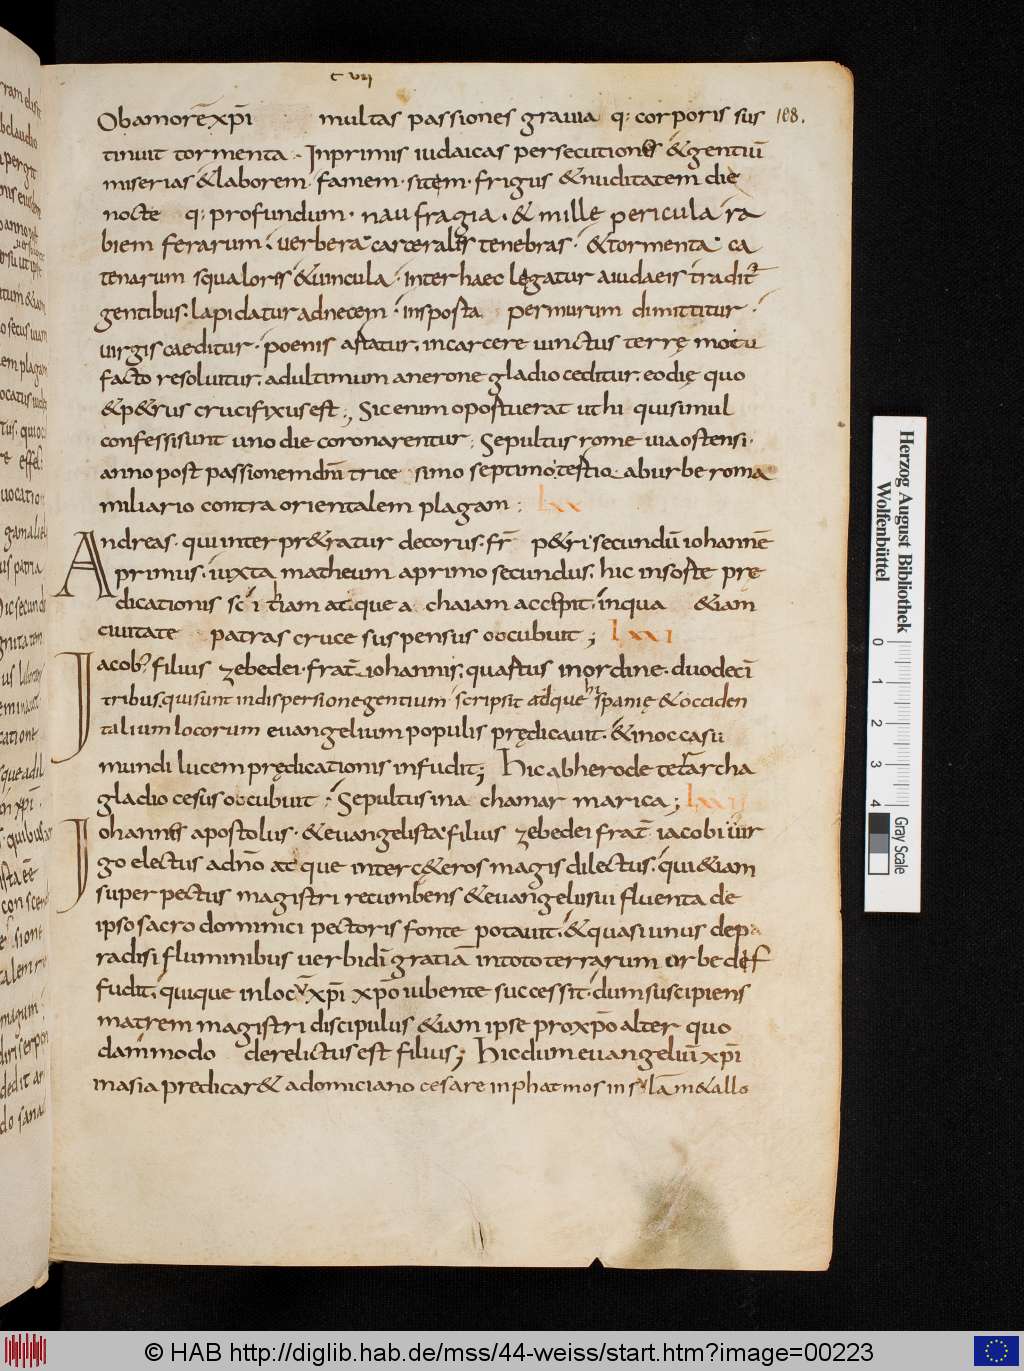 c vii
Ob amorē xp̄i multas passiones gravia q: corporis sus 108.
tinuit tormenta. Inprimis iudaicas persecutiones & gentiū
miserias & laborem famem. sitem. frigus & nuditatem die
nocte q: profundum. naufragia. & mille pericula ra
biem ferarum. uerbera carceralis tenebras. & tormenta ca
tenarum squaloris & uincula. inter haec legatur a iudaeis tradit
gentibus. lapidatur ad necem. insposta per murum dimittitur.
uirgis caeditur. poenis astatur. in carcere uinctus terrę motu
facto resoluitur. ad ultimum a nerone gladio ceditur. eo dię quo
& p&rus crucifixus est; Sic enim opostuerat ut hi qui simul
confessi sunt uno die coronarentur. Sepultus rome uia ostensi.
anno post passionem dnī trice simo septimo. testio. ab urbe roma
miliario contra orientalem plagam: lxx
Andreas. qui interpr&ratur decorus. fr̄ p&ri secundū iohannē
primus. iuxta matheum a primo secundus. hic in softe prę
dicationis scitiam atque achaiam accepit. in qua &iam
ciuitate patras cruce suspensus occubuit; lxxi
Iacob; filius zebedei. frat̄ iohannis. quaftus in ordine. duodecī
tribus. qui sunt in dispersione gentium scripsit adque hispanię & occiden
talium locorum euangelium populis prędicauit. & in occasu
mundi lucem prędicationis infudit; Hic ab herode tetrarcha
gladio cesus occubuit. Sepultus in achamar marica; lxxii
Iohannes apostolus. & euangelista filius zebedei frat̄ iacobi uir
go electus a dnō atque inter c&eros magis dilectus. qui &iam
super pectus magistri recumbens & euangelii sui fluenta de
ipso sacro dominici pectoris fonte potauit. & quasi unus de pa
radisi fluminibus uerbi dī gratiā in toto terrarum orbe dif
fudit. quique in locū xp̄i xp̄o iubente successit. dum suscipiens
matrem magistri discipulus &iam ipse pro xp̄o alter quo
dammodo derelictus est filius; Hic dum euangeliū xp̄i
in asia predicar& a domiciano cesare in phatmos insulam & allo
Herzog August Bibliothek
Wolfenbüttel
0 1 2 3 4
Gray Scale
© HAB http://diglib.hab.de/mss/44-weiss/start.htm?image=00223